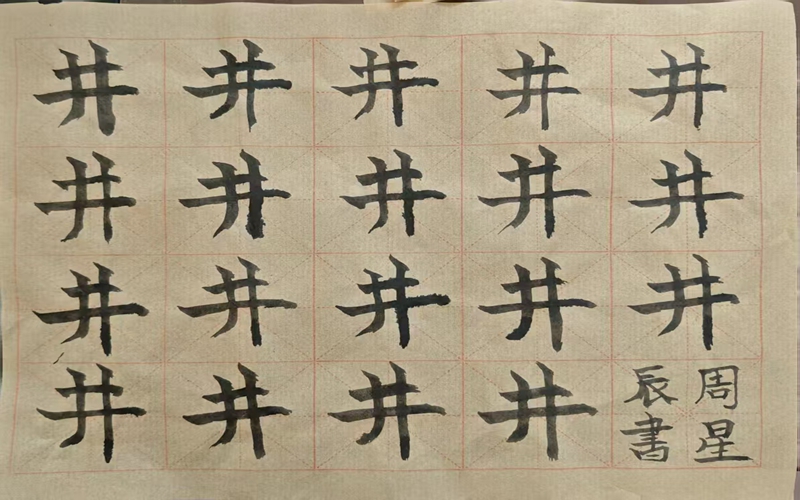 井井井井井
井井井井井
井井井井井
井井井井
周星
辰書